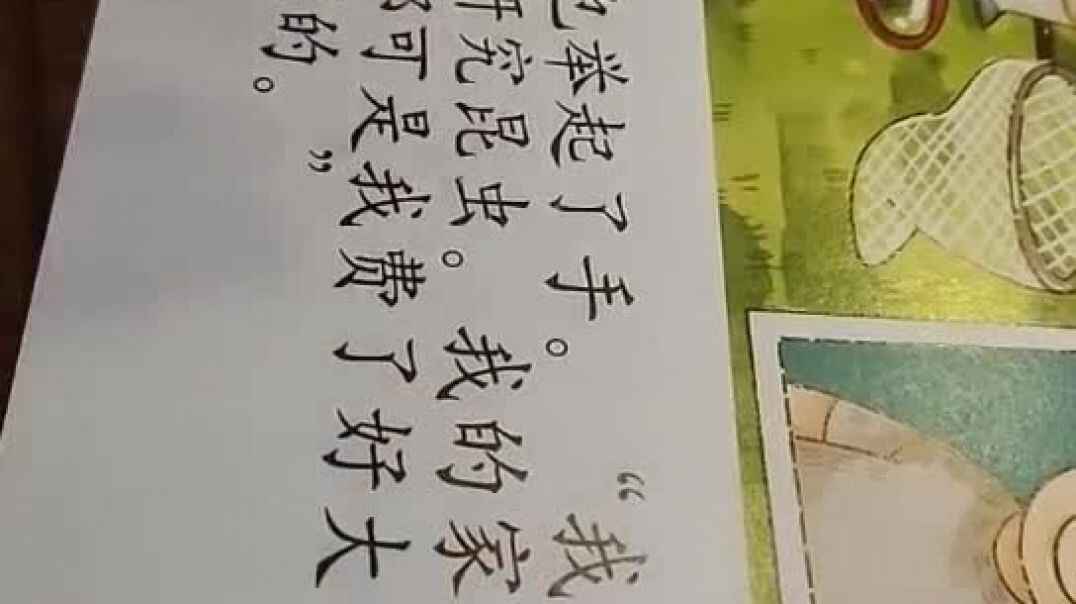 举起了手。“我
研究昆虫。我的家
可是我费了好大
的。”